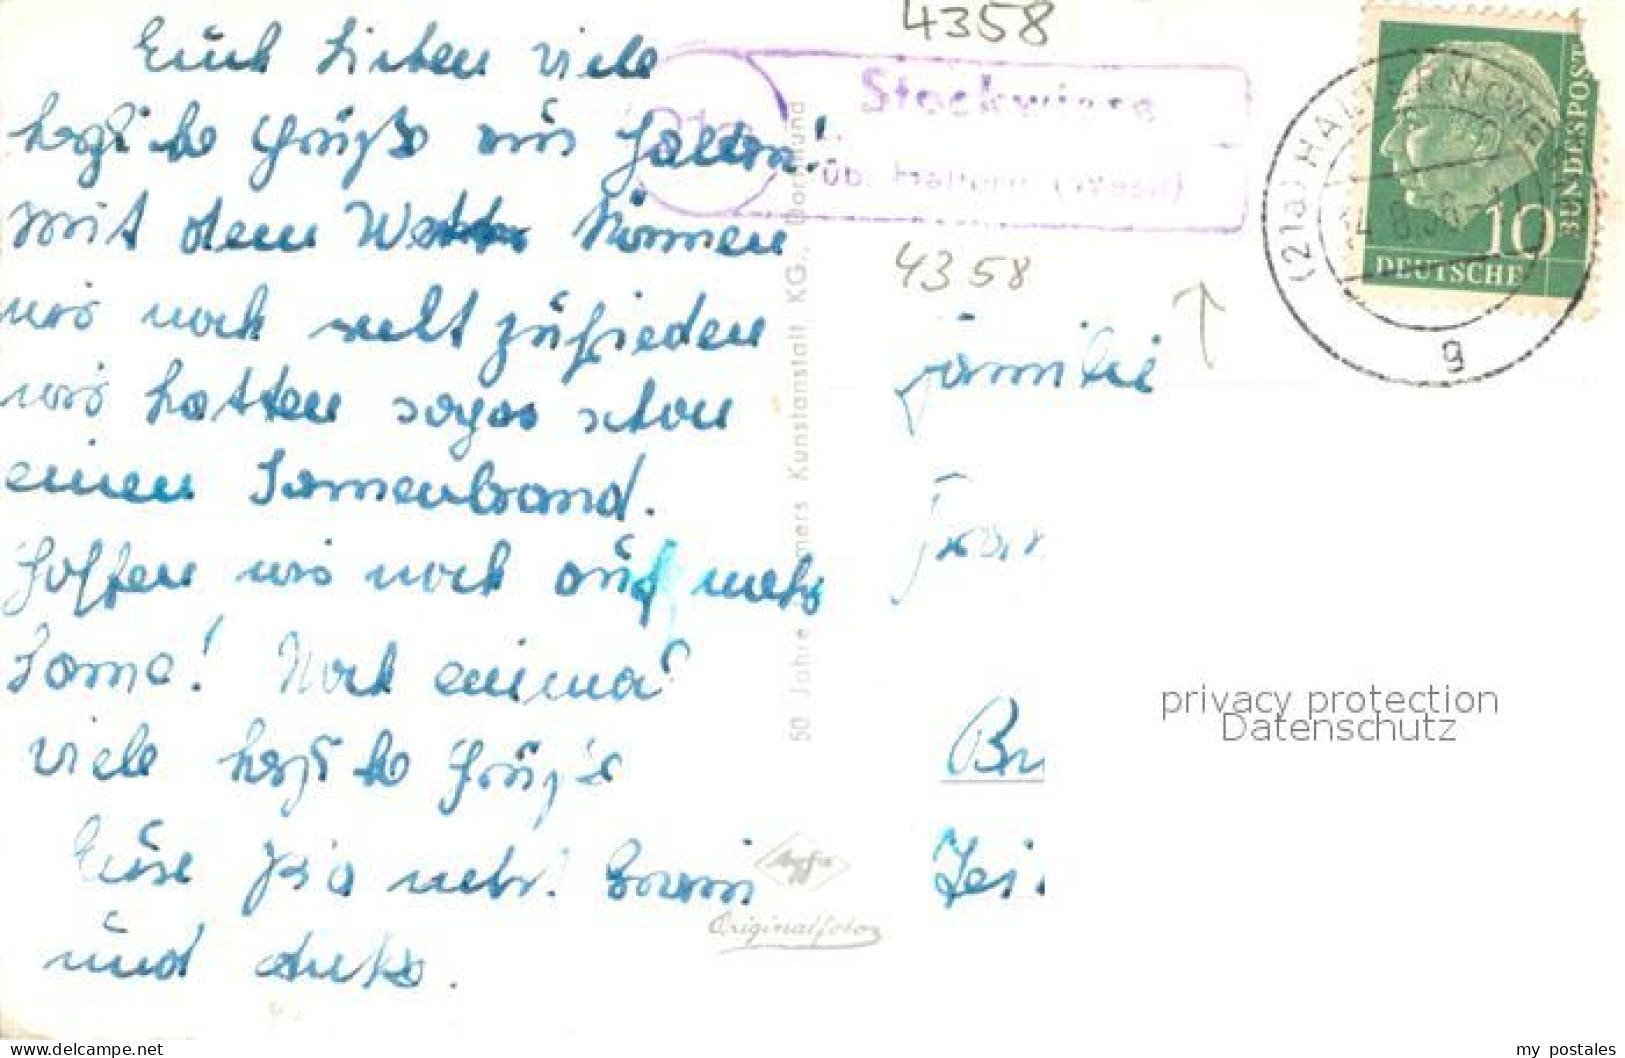 4358
Euch Lieben viele
herzliche Grüße aus Haltern!
mit dem Wetter können
wir noch nicht zufrieden
wir hatten sogar schon
einen Sonnenbrand.
Hoffen wir noch auf mehr
Sonne! Noch einmal
viele herzliche Grüße
Eure nebst Erwin
und
Stockwiese
üb. Haltern (Westf)
4358
Familie
Fran
Br
(21a) HALTERN (WE
8.56
g
10
DEUTSCHE
BUNDESPOST
50 Jahre mers Kunstanstalt KG., Dortmund
Agfa
Originalfoto
privacy protection
Datenschutz
www.delcampe.net
my_postales